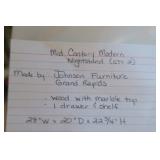 Mid Century Modern
Nightstand (sts 2)
Made by: Johnson Furniture
Grand Rapids
- wood with marble top
- 1 drawer & shelf
28" W x 20" D x 22 3/4" H